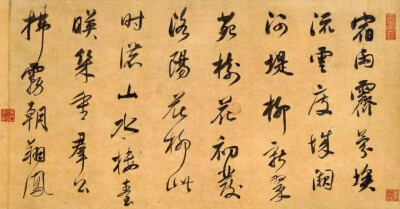 宿雨霽氛埃
流雲度城闕
河堤柳新翠
苑樹花初發
洛陽花柳此
時濃山水樓臺
映幾重羣公
拂霧朝翔鳳